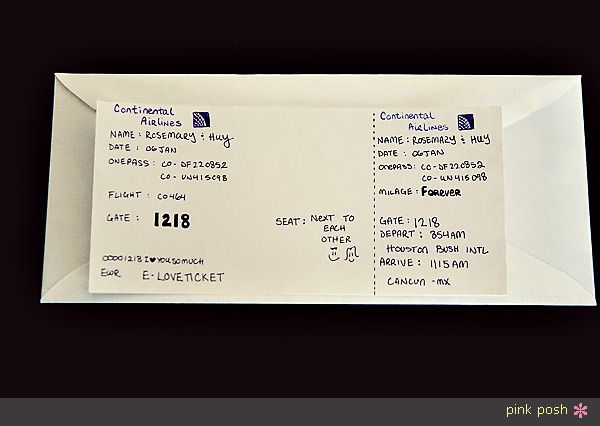 Continental
Airlines
NAME: ROSEMARY & HUY
DATE: 06JAN
ONEPASS: CO-DF220852
CO-UN415098
FLIGHT: CO464
GATE: 1218
SEAT: NEXT TO
EACH
OTHER
00001218 I♥YOUSOMUCH
EWR E-LOVETICKET
Continental
Airlines
NAME: ROSEMARY & HUY
DATE: 06JAN
ONEPASS: CO-DF220852
CO-UN415098
MILAGE: FOREVER
GATE: 1218
DEPART: 854AM
HOUSTON BUSH INTL
ARRIVE: 1115AM
CANCUN-MX
pink posh